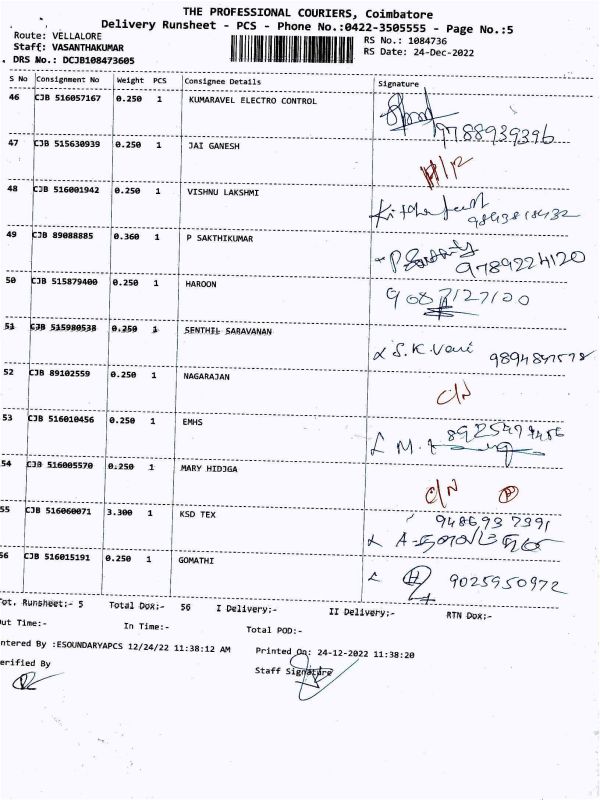 THE PROFESSIONAL COURIERS, Coimbatore
Delivery Runsheet - PCS - Phone No.:0422-3505555 - Page No.:5
Route: VELLALORE
RS No.: 1084736
Staff: VASANTHAKUMAR
RS Date: 24-Dec-2022
DRS No.: DCJB108473605
S No Consignment No Weight PCS Consignee Details Signature
46 CJB 516057167 0.250 1 KUMARAVEL ELECTRO CONTROL
9788939396
47 CJB 515630939 0.250 1 JAI GANESH
48 CJB 516001942 0.250 1 VISHNU LAKSHMI
49 CJB 89088885 0.360 1 P SAKTHIKUMAR
9789224120
50 CJB 515879400 0.250 1 HAROON
9087127100
51 CJB 515980538 0.250 1 SENTHIL SARAVANAN
S.K.Vani
52 CJB 89102559 0.250 1 NAGARAJAN
C/N
53 CJB 516010456 0.250 1 EMHS
54 CJB 516005570 0.250 1 MARY HIDJGA
C/N P
55 CJB 516060071 3.300 1 KSD TEX
9486937391
56 CJB 516015191 0.250 1 GOMATHI
9025950972
Tot. Runsheet:- 5 Total Dox:- 56 I Delivery:- II Delivery:- RTN Dox:-
Out Time:- In Time:- Total POD:-
Entered By :ESOUNDARYAPCS 12/24/22 11:38:12 AM Printed On: 24-12-2022 11:38:20
Verified By Staff Signature